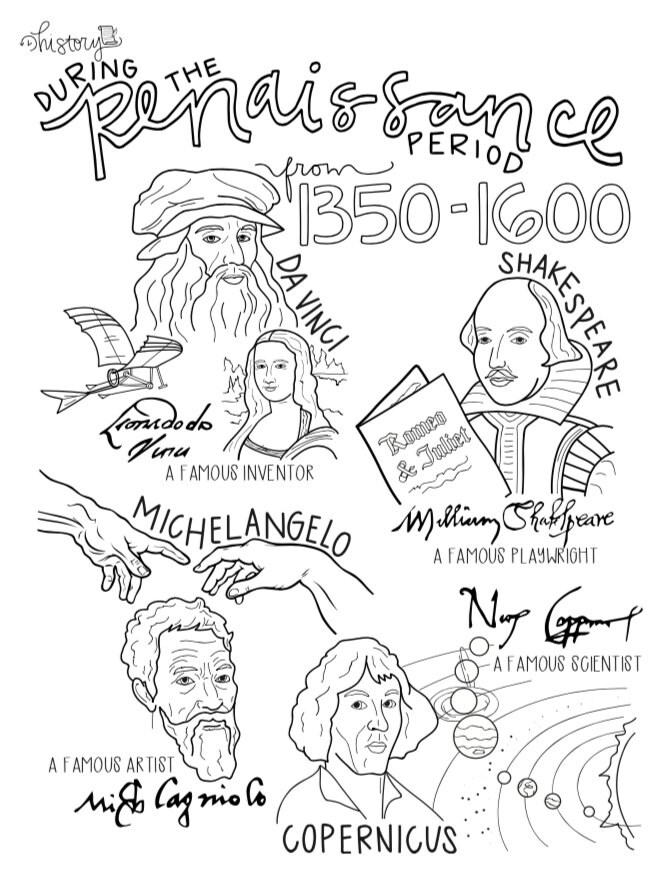 history
DURING THE
Renaissance
PERIOD
from
1350-1600
DA VINCI
SHAKESPEARE
Romeo
& Juliet
A FAMOUS INVENTOR
William Shakspeare
A FAMOUS PLAYWRIGHT
MICHELANGELO
A FAMOUS SCIENTIST
A FAMOUS ARTIST
COPERNICUS